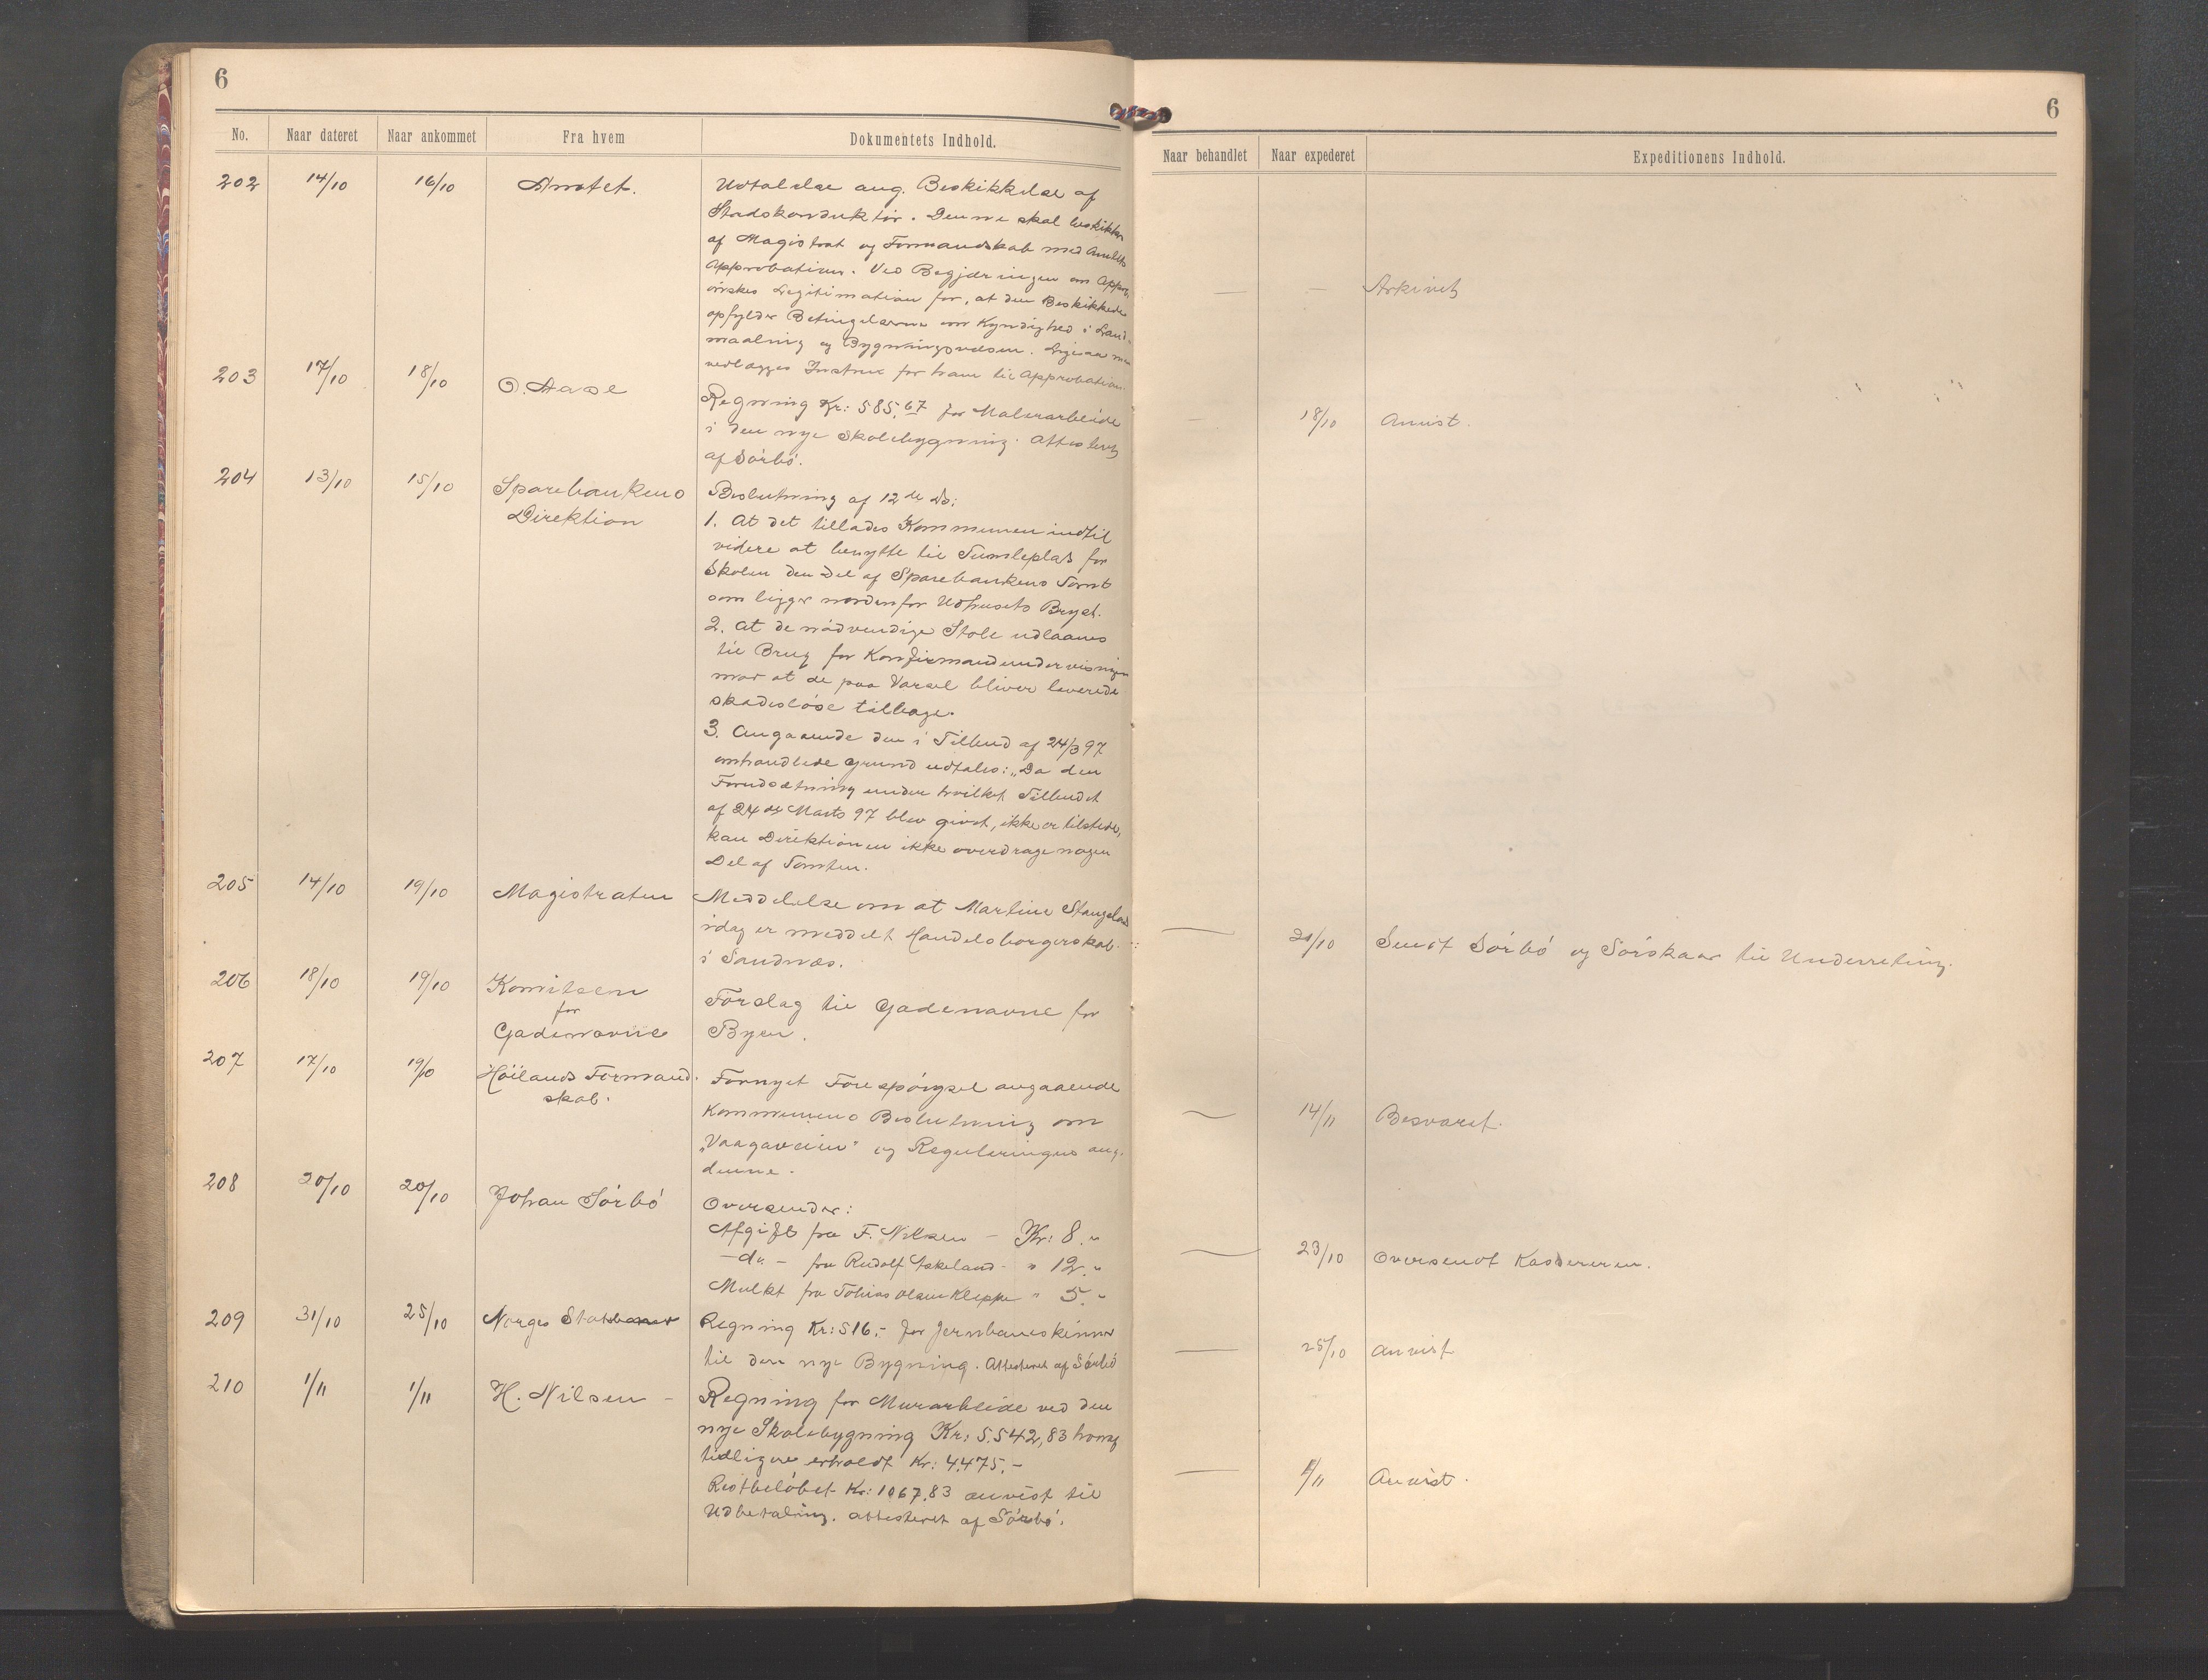 6
No. Naar dateret Naar ankommet Fra hvem Dokumentets Indhold.
202 14/10 16/10 Amtet. Udtalelse ang. Beskikkelse af
Stadskonduktør. Denne skal beskikkes
af Magistrat og Formandskab med Amtets
Approbation. Ved Begjæringen om Appro.
ønskes Legitimation for, at den Beskikkede
opfylder Betingelserne om Kyndighed i Land-
maaling og Bygningsvæsen. Ligesaa maa
vedlægges Instrux for ham til Approbation.
203 17/10 18/10 O. Aase Regning Kr: 585,67 for Malerarbeide
i den nye Skolebygning. Attesteret
af Sörbö.
204 13/10 15/10 Sparebankens Direktion Beslutning af 12de ds:
1. At det tillades Kommunen indtil
videre at benytte til Tumleplads for
Skolen den Del af Sparebankens Tomt
som ligger nordenfor Udhusets Bryst.
2. At de nödvendige Stole udlaanes
til Brug for Konfirmandundervisningen
mod at de paa Varsel bliver leverede
skadesløse tilbage.
3. Angaaende den i Tilbud af 24/3 97
omhandlede Grund udtales: „Da den
Forudsætning under hvilket Tilbudet
af 24de Marts 97 blev givet, ikke er tilstede,
kan Direktionen ikke overdrage nogen
Del af Tomten.
205 14/10 19/10 Magistraten Meddelelse om at Martine Stangeland
idag er meddelt Handelsborgerskab
i Sandnæs.
206 18/10 19/10 Komiteen for Gadenavne Forslag til Gadenavne for
Byen.
207 17/10 19/10 Höilands Formandskab. Fornyet Forespörgsel angaaende
Kommunens Beslutning om
„Vaagaveien" og Reguleringen ang.
denne.
208 20/10 20/10 Johan Sörbö Oversender:
Afgift fra F. Nilsen – Kr: 8."
– do. – fra Rudolf Eskeland - " 12."
Mulkt fra Tobias Olsen Kleppe " 5.-
209 31/10 25/10 Norges Statsbaner Regning Kr: 516.- for Jernbaneskinner
til den nye Bygning. Attesteret af Sörbö
210 1/11 1/11 H. Nilsen – Regning for Murarbeide ved den
nye Skolebygning Kr: 5.542,83 hvoraf
tidligere erholdt Kr: 4.475.-
Restbelöbet Kr: 1067.83 anvist til
Udbetaling. attesteret af Sörbö.
6
Naar behandlet Naar expederet Expeditionens Indhold.
— — Arkivet
— 18/10 Anvist.
— 21/10 Sendt Sörbö og Törskaar til Underretning.
— 14/11 Besvaret.
— 23/10 Oversendt Kassereren.
— 25/10 Anvist
— 1/11 Anvist.